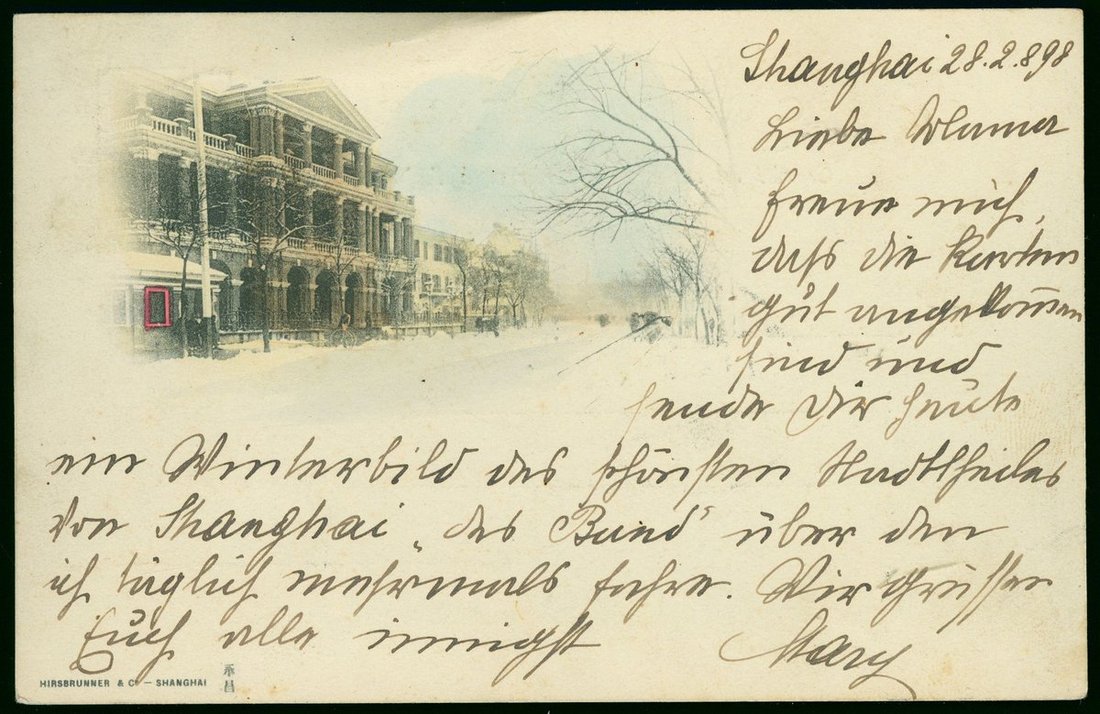 Shanghai 28.2.898
Liebe Mama
freue mich,
dass die Karten
gut angekommen
sind und
sende Dir heute
ein Winterbild des schönsten Stadttheiles
von Shanghai „des Bund" über den
ich täglich mehrmals fahre. Wir grüssen
Euch alle innigst
Mary
HIRSBRUNNER & Co – SHANGHAI
承昌